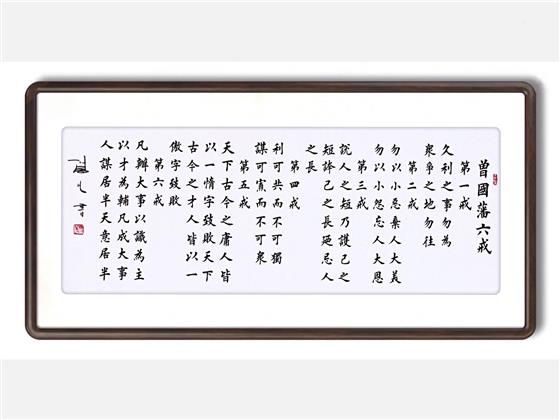 曾國藩六戒
第一戒
久利之事勿為
衆爭之地勿往
第二戒
勿以小惡棄人大美
勿以小怨忘人大恩
第三戒
説人之短乃護己之
短誇己之長廼忌人
之長
第四戒
利可共而不可獨
謀可寡而不可衆
第五戒
天下古今之庸人皆
以一惰字致敗天下
古今之才人皆以一
傲字致敗
第六戒
凡辦大事以識為主
以才為輔凡成大事
人謀居半天意居半
書